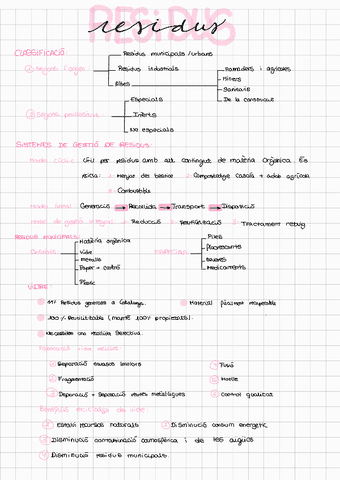 RESIDUS
residus
CLASSIFICACIÓ
① Segons l'origen
Residus municipals / urbans
Residus industrials
Altres
Ramaders i agrícoles
Miners
Sanitaris
De la construcció
② Segons perillositat
Especials
Inerts
No especials
SISTEMES DE GESTIÓ DE RESIDUS:
útil per residus amb alt contingut de matèria orgànica. Es
recicla: Compostatge casolà + adob agrícola
Combustible
Model lineal: Generació → Recollida → Transport → Disposició
Model de gestió integral: Reducció Reutilització Tractament rebuig
RESIDUS MUNICIPALS:
Ordinaris
Matèria orgànica
Vidre
Metalls
Paper + cartró
Plàstic
ESPECIALS
Piles
Fluorescents
Medicaments
VIDRE:
11% Residus generats a Catalunya.
Material fàcilment recuperable
100% Reutilitzable (manté 100% propietats).
Necessiten una recollida selectiva.
① Separació envasos
② Fragmentació
③ Separació + Separació restes metàl·liques
④ Fusió
⑤ Motlle
⑥ Control qualitat
Beneficis reciclatge de vidre:
① Estalvi recursos naturals
② Disminució consum energètic
③ Disminució contaminació atmosfèrica i de les aigües
④ Disminució residus municipals.